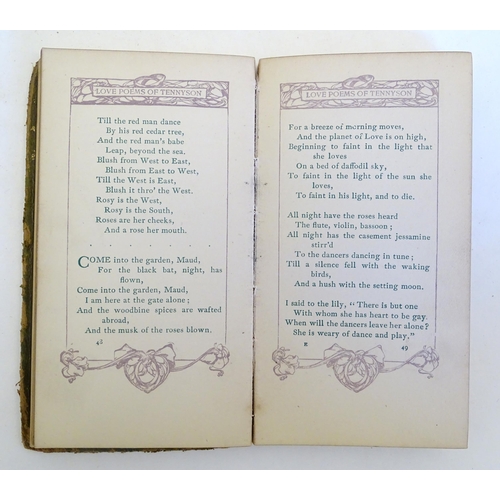 LOVE POEMS OF TENNYSON
Till the red man dance
By his red cedar tree,
And the red man's babe
Leap, beyond the sea.
Blush from West to East,
Blush from East to West,
Till the West is East,
Blush it thro' the West.
Rosy is the West,
Rosy is the South,
Roses are her cheeks,
And a rose her mouth.
. . . . . . .
COME into the garden, Maud,
For the black bat, night, has
flown,
Come into the garden, Maud,
I am here at the gate alone;
And the woodbine spices are wafted
abroad,
And the musk of the roses blown.
48
LOVE POEMS OF TENNYSON
For a breeze of morning moves,
And the planet of Love is on high,
Beginning to faint in the light that
she loves
On a bed of daffodil sky,
To faint in the light of the sun she
loves,
To faint in his light, and to die.
All night have the roses heard
The flute, violin, bassoon;
All night has the casement jessamine
stirr'd
To the dancers dancing in tune;
Till a silence fell with the waking
birds,
And a hush with the setting moon.
I said to the lily, "There is but one
With whom she has heart to be gay.
When will the dancers leave her alone?
She is weary of dance and play."
E 49